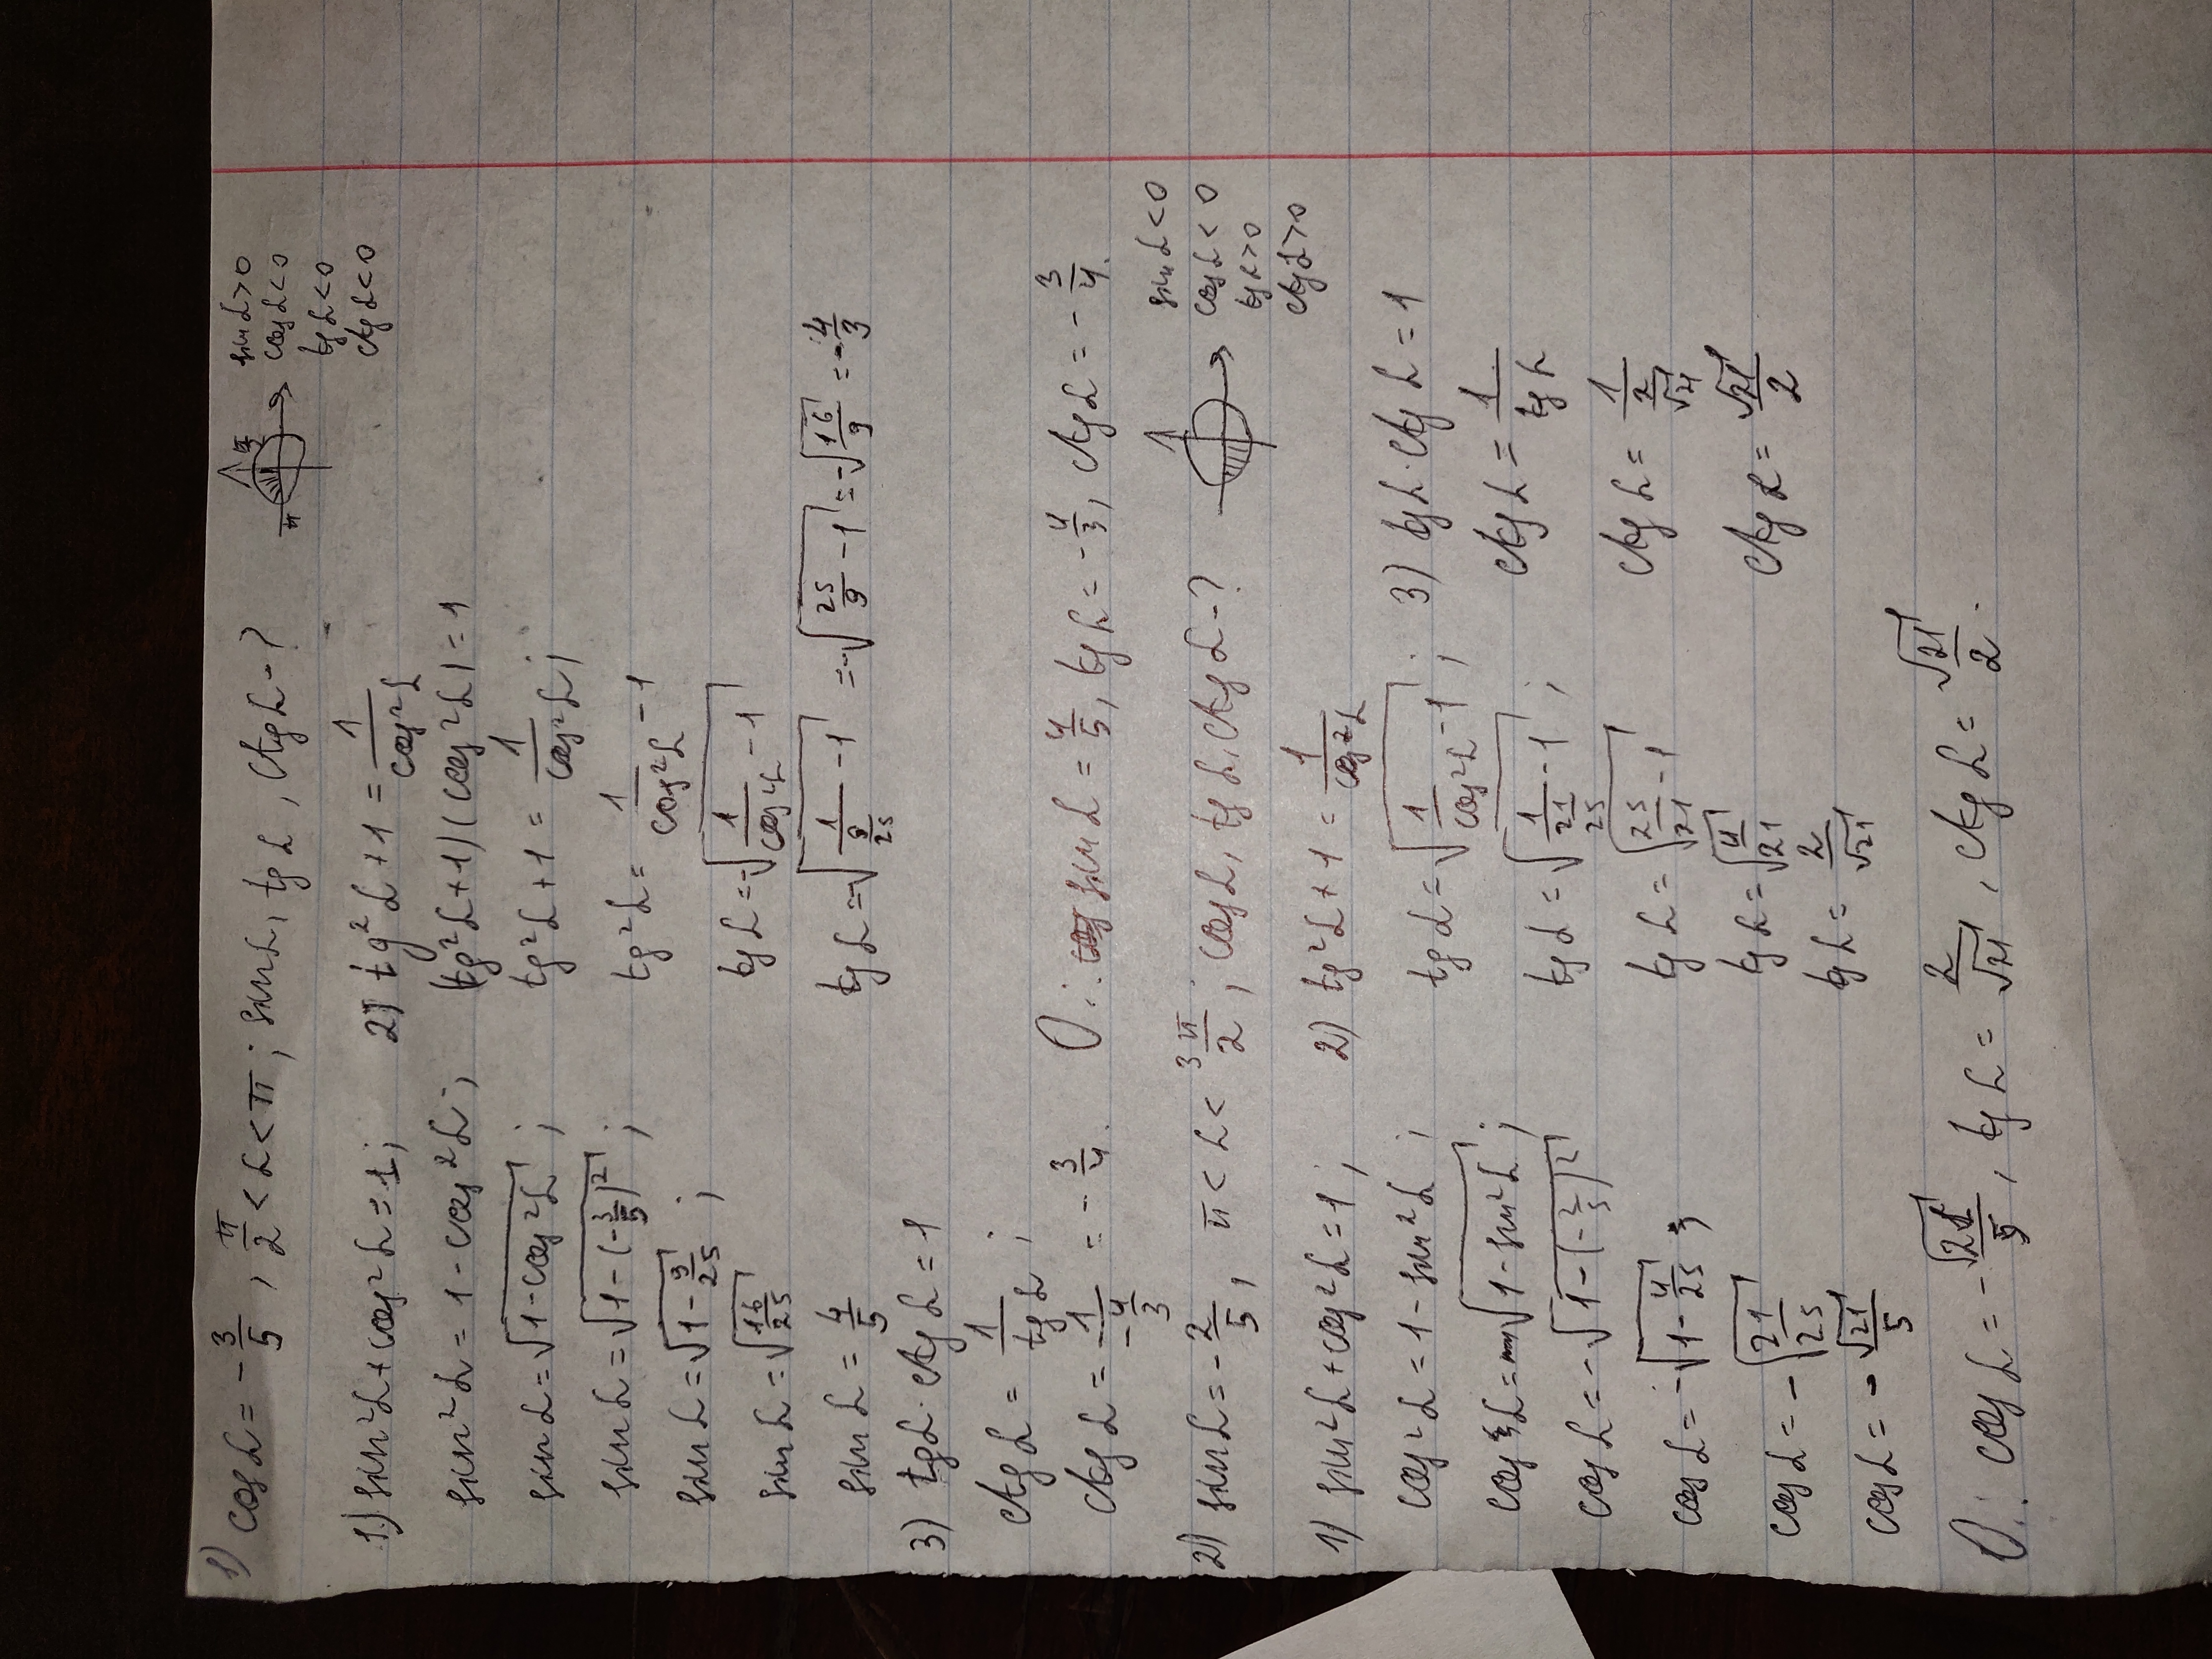 1) cos α = -3/5, π/2 < α < π; sin α, tg α, ctg α - ?
π π/2
sin α > 0
cos α < 0
tg α < 0
ctg α < 0
1) sin²α + cos²α = 1;
sin²α = 1 - cos²α;
sin α = √(1 - cos²α);
sin α = √(1 - (-3/5)²);
sin α = √(1 - 9/25);
sin α = √(16/25)
sin α = 4/5
2) tg²α + 1 = 1/cos²α
(tg²α + 1)(cos²α) = 1
tg²α + 1 = 1/cos²α;
tg²α = 1/cos²α - 1
tg α = -√(1/cos²α - 1)
tg α = -√(1/(9/25) - 1) = -√(25/9 - 1) = -√(16/9) = -4/3
3) tg α · ctg α = 1
ctg α = 1/tg α;
ctg α = 1/(-4/3) = -3/4.
О.: sin α = 4/5, tg α = -4/3, ctg α = -3/4.
2) sin α = -2/5, π < α < 3π/2; cos α, tg α, ctg α - ?
sin α < 0
cos α < 0
tg α > 0
ctg α > 0
1) sin²α + cos²α = 1;
cos²α = 1 - sin²α;
cos α = -√(1 - sin²α);
cos α = -√(1 - (-2/5)²)
cos α = -√(1 - 4/25);
cos α = -√(21/25)
cos α = -√21/5
2) tg²α + 1 = 1/cos²α
tg α = √(1/cos²α - 1);
tg α = √(1/(21/25) - 1);
tg α = √(25/21 - 1)
tg α = √(4/21)
tg α = 2/√21
3) tg α · ctg α = 1
ctg α = 1/tg α
ctg α = 1/(2/√21)
ctg α = √21/2
О.: cos α = -√21/5, tg α = 2/√21, ctg α = √21/2.